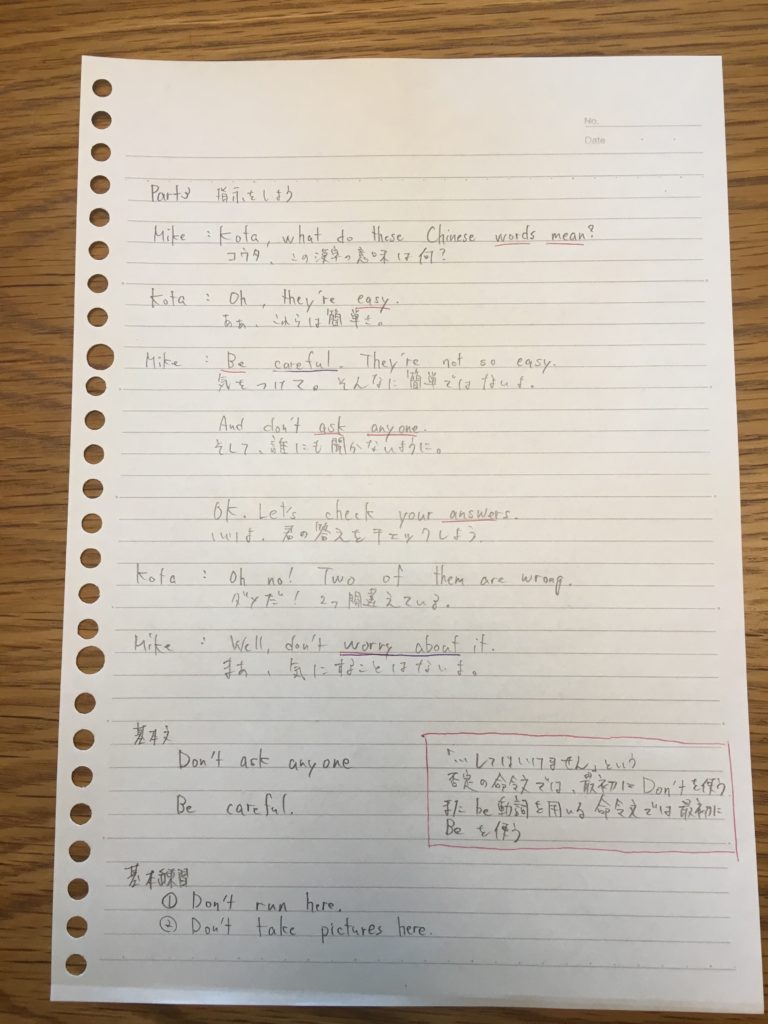 No.
Date
Part 指示をしよう
Mike : Kota, what do these Chinese words mean?
コウタ、この漢字の意味は何?
Kota : Oh, they're easy.
ああ、これらは簡単さ。
Mike : Be careful. They're not so easy.
気をつけて。そんなに簡単ではないよ。
And don't ask anyone.
そして、誰にも聞かないように。
OK. Let's check your answers.
いいよ、君の答えをチェックしよう。
Kota : Oh no! Two of them are wrong.
ダメだ! 2つ間違えている。
Mike : Well, don't worry about it.
まあ、気にすることはないよ。
基本文
Don't ask anyone
Be careful.
「…してはいけません」という
否定の命令文では、最初にDon'tを使う
またbe動詞を用いる命令文では最初に
Beを使う
基本練習
① Don't run here.
② Don't take pictures here.